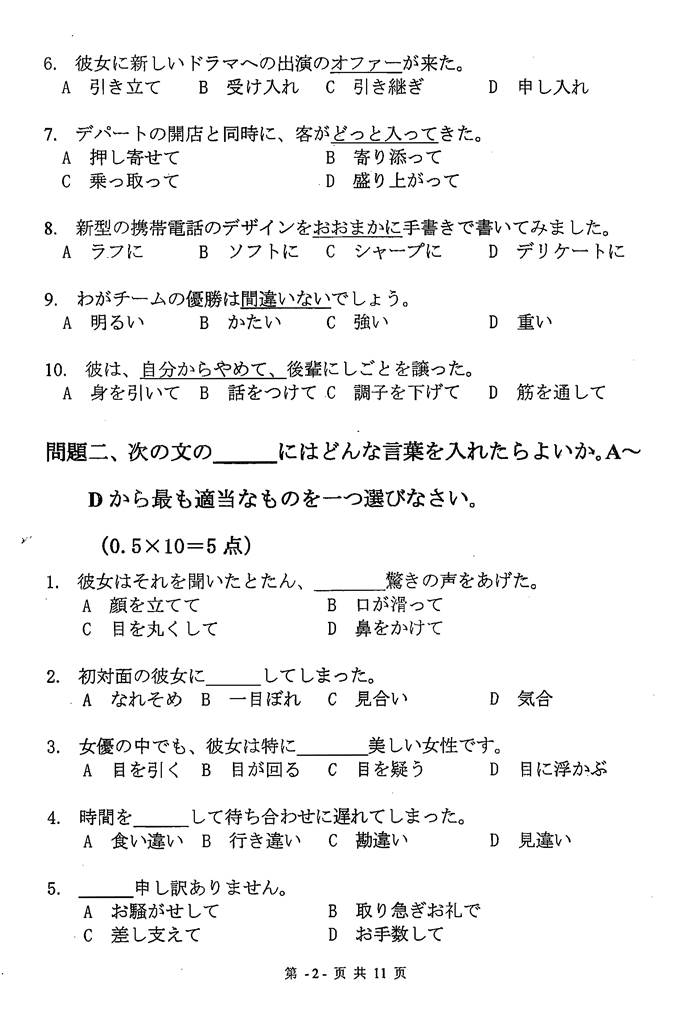 6. 彼女に新しいドラマへの出演のオファーが来た。
A 引き立て B 受け入れ C 引き継ぎ D 申し入れ
7. デパートの開店と同時に、客がどっと入ってきた。
A 押し寄せて B 寄り添って
C 乗っ取って D 盛り上がって
8. 新型の携帯電話のデザインをおおまかに手書きで書いてみました。
A ラフに B ソフトに C シャープに D デリケートに
9. わがチームの優勝は間違いないでしょう。
A 明るい B かたい C 強い D 重い
10. 彼は、自分からやめて、後輩にしごとを譲った。
A 身を引いて B 話をつけて C 調子を下げて D 筋を通して
問題二、次の文の_____にはどんな言葉を入れたらよいか。A～
D から最も適当なものを一つ選びなさい。
（0.5×10＝5 点）
1. 彼女はそれを聞いたとたん、_______驚きの声をあげた。
A 顔を立てて B 口が滑って
C 目を丸くして D 鼻をかけて
2. 初対面の彼女に_____してしまった。
A なれそめ B 一目ぼれ C 見合い D 気合
3. 女優の中でも、彼女は特に_______美しい女性です。
A 目を引く B 目が回る C 目を疑う D 目に浮かぶ
4. 時間を_____して待ち合わせに遅れてしまった。
A 食い違い B 行き違い C 勘違い D 見違い
5. _____申し訳ありません。
A お騒がせして B 取り急ぎお礼で
C 差し支えて D お手数して
第 -2- 页 共 11 页